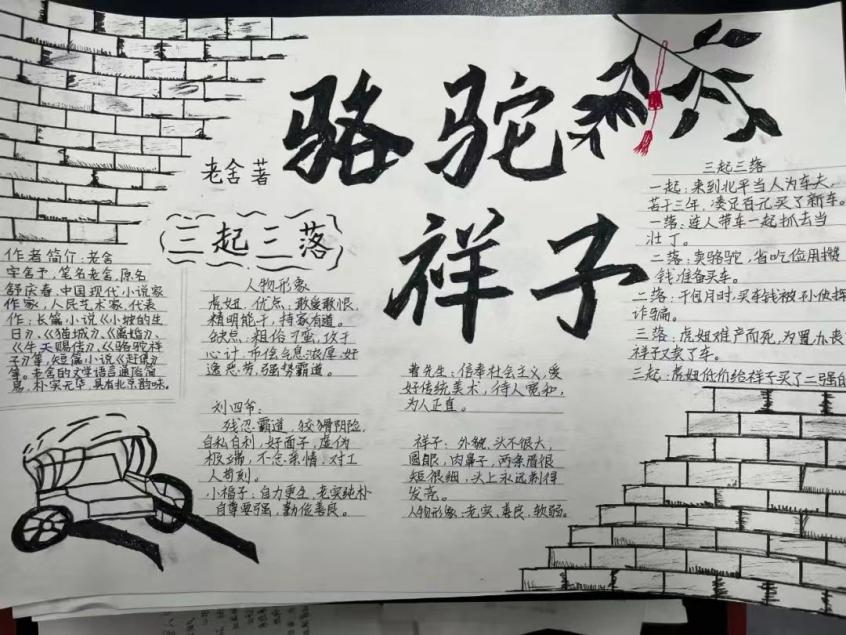 骆驼
祥子
老舍 著
三起三落
作者简介:老舍
字舍予,笔名老舍,原名
舒庆春,中国现代小说家
作家,人民艺术家,代表
作:长篇小说《小坡的生
日》、《猫城》、《离婚》、
《牛天赐信》、《骆驼祥
子》等,短篇小说《赶集》
等。老舍的文学语言通俗简
易,朴实无华,具有北京韵味。
人物形象
虎妞,优点:敢爱敢恨,
精明能干,持家有道。
缺点:粗俗刁蛮,攻于
心计,市侩气息浓厚,好
逸恶劳,强势霸道。
刘四爷:
残忍霸道,狡猾阴险,
自私自利,好面子,虚伪
极端,不念亲情,对工
人苛刻。
小福子:自力更生,老实纯朴
自尊要强,勤俭善良。
曹先生:信奉社会主义,爱
好传统美术,待人宽和,
为人正直。
祥子:外貌,头不很大,
圆眼,肉鼻子,两条眉很
短很细,头上永远剃得
发亮。
人物形象:老实,善良,软弱。
三起三落
一起:来到北平当人力车夫,
苦干三年,凑足百元买了新车。
一落:连人带车一起抓去当
壮丁。
二落:卖骆驼,省吃俭用攒
钱准备买车。
二落:干包月时,买车钱被孙侦探
诈骗。
三落:虎妞难产而死,为置办丧
祥子又卖了车。
三起:虎妞低价给祥子买了二强的